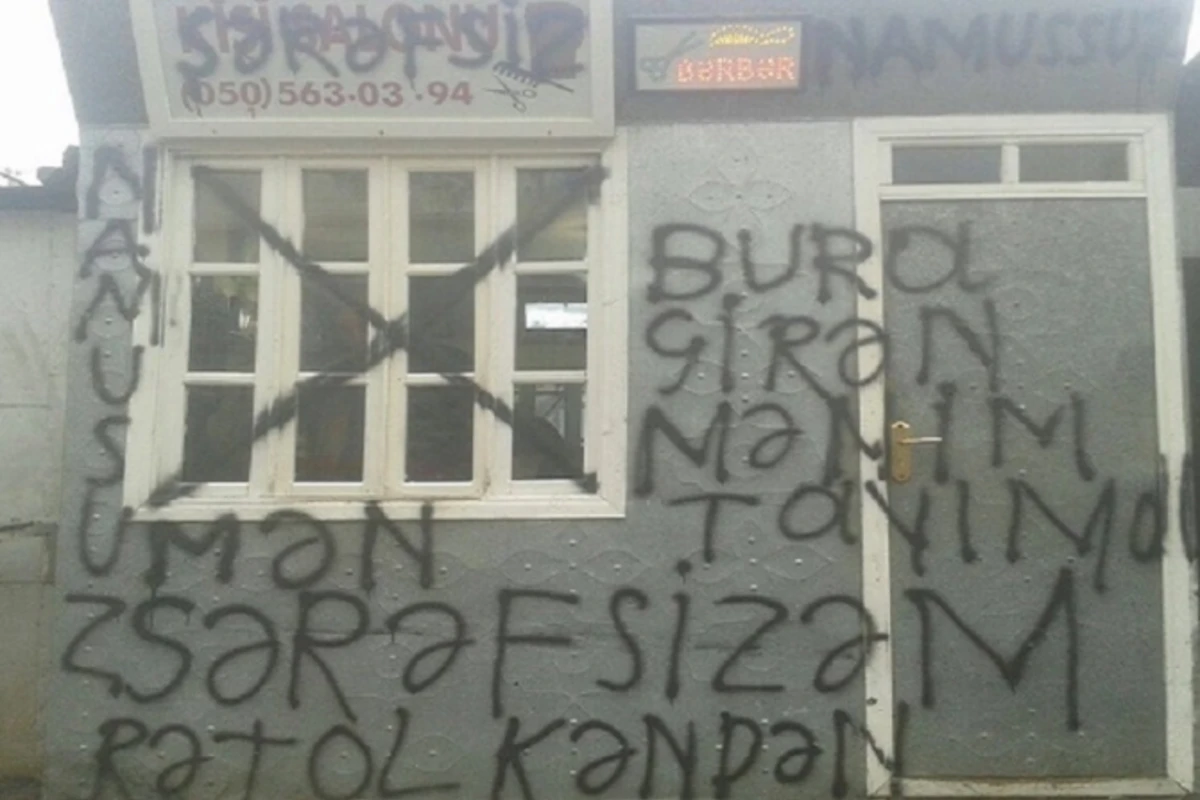 KİŞİ SALONU
ŞƏRƏFSİZ
(050) 563-03-94
BƏRBƏR
NAMUSSUZ
NAMUSSUZ
BURA
GİRƏN
MƏNİM
TAYIMdı
MƏN
ŞƏRƏFSİZƏM
RƏTOL KƏNDƏN